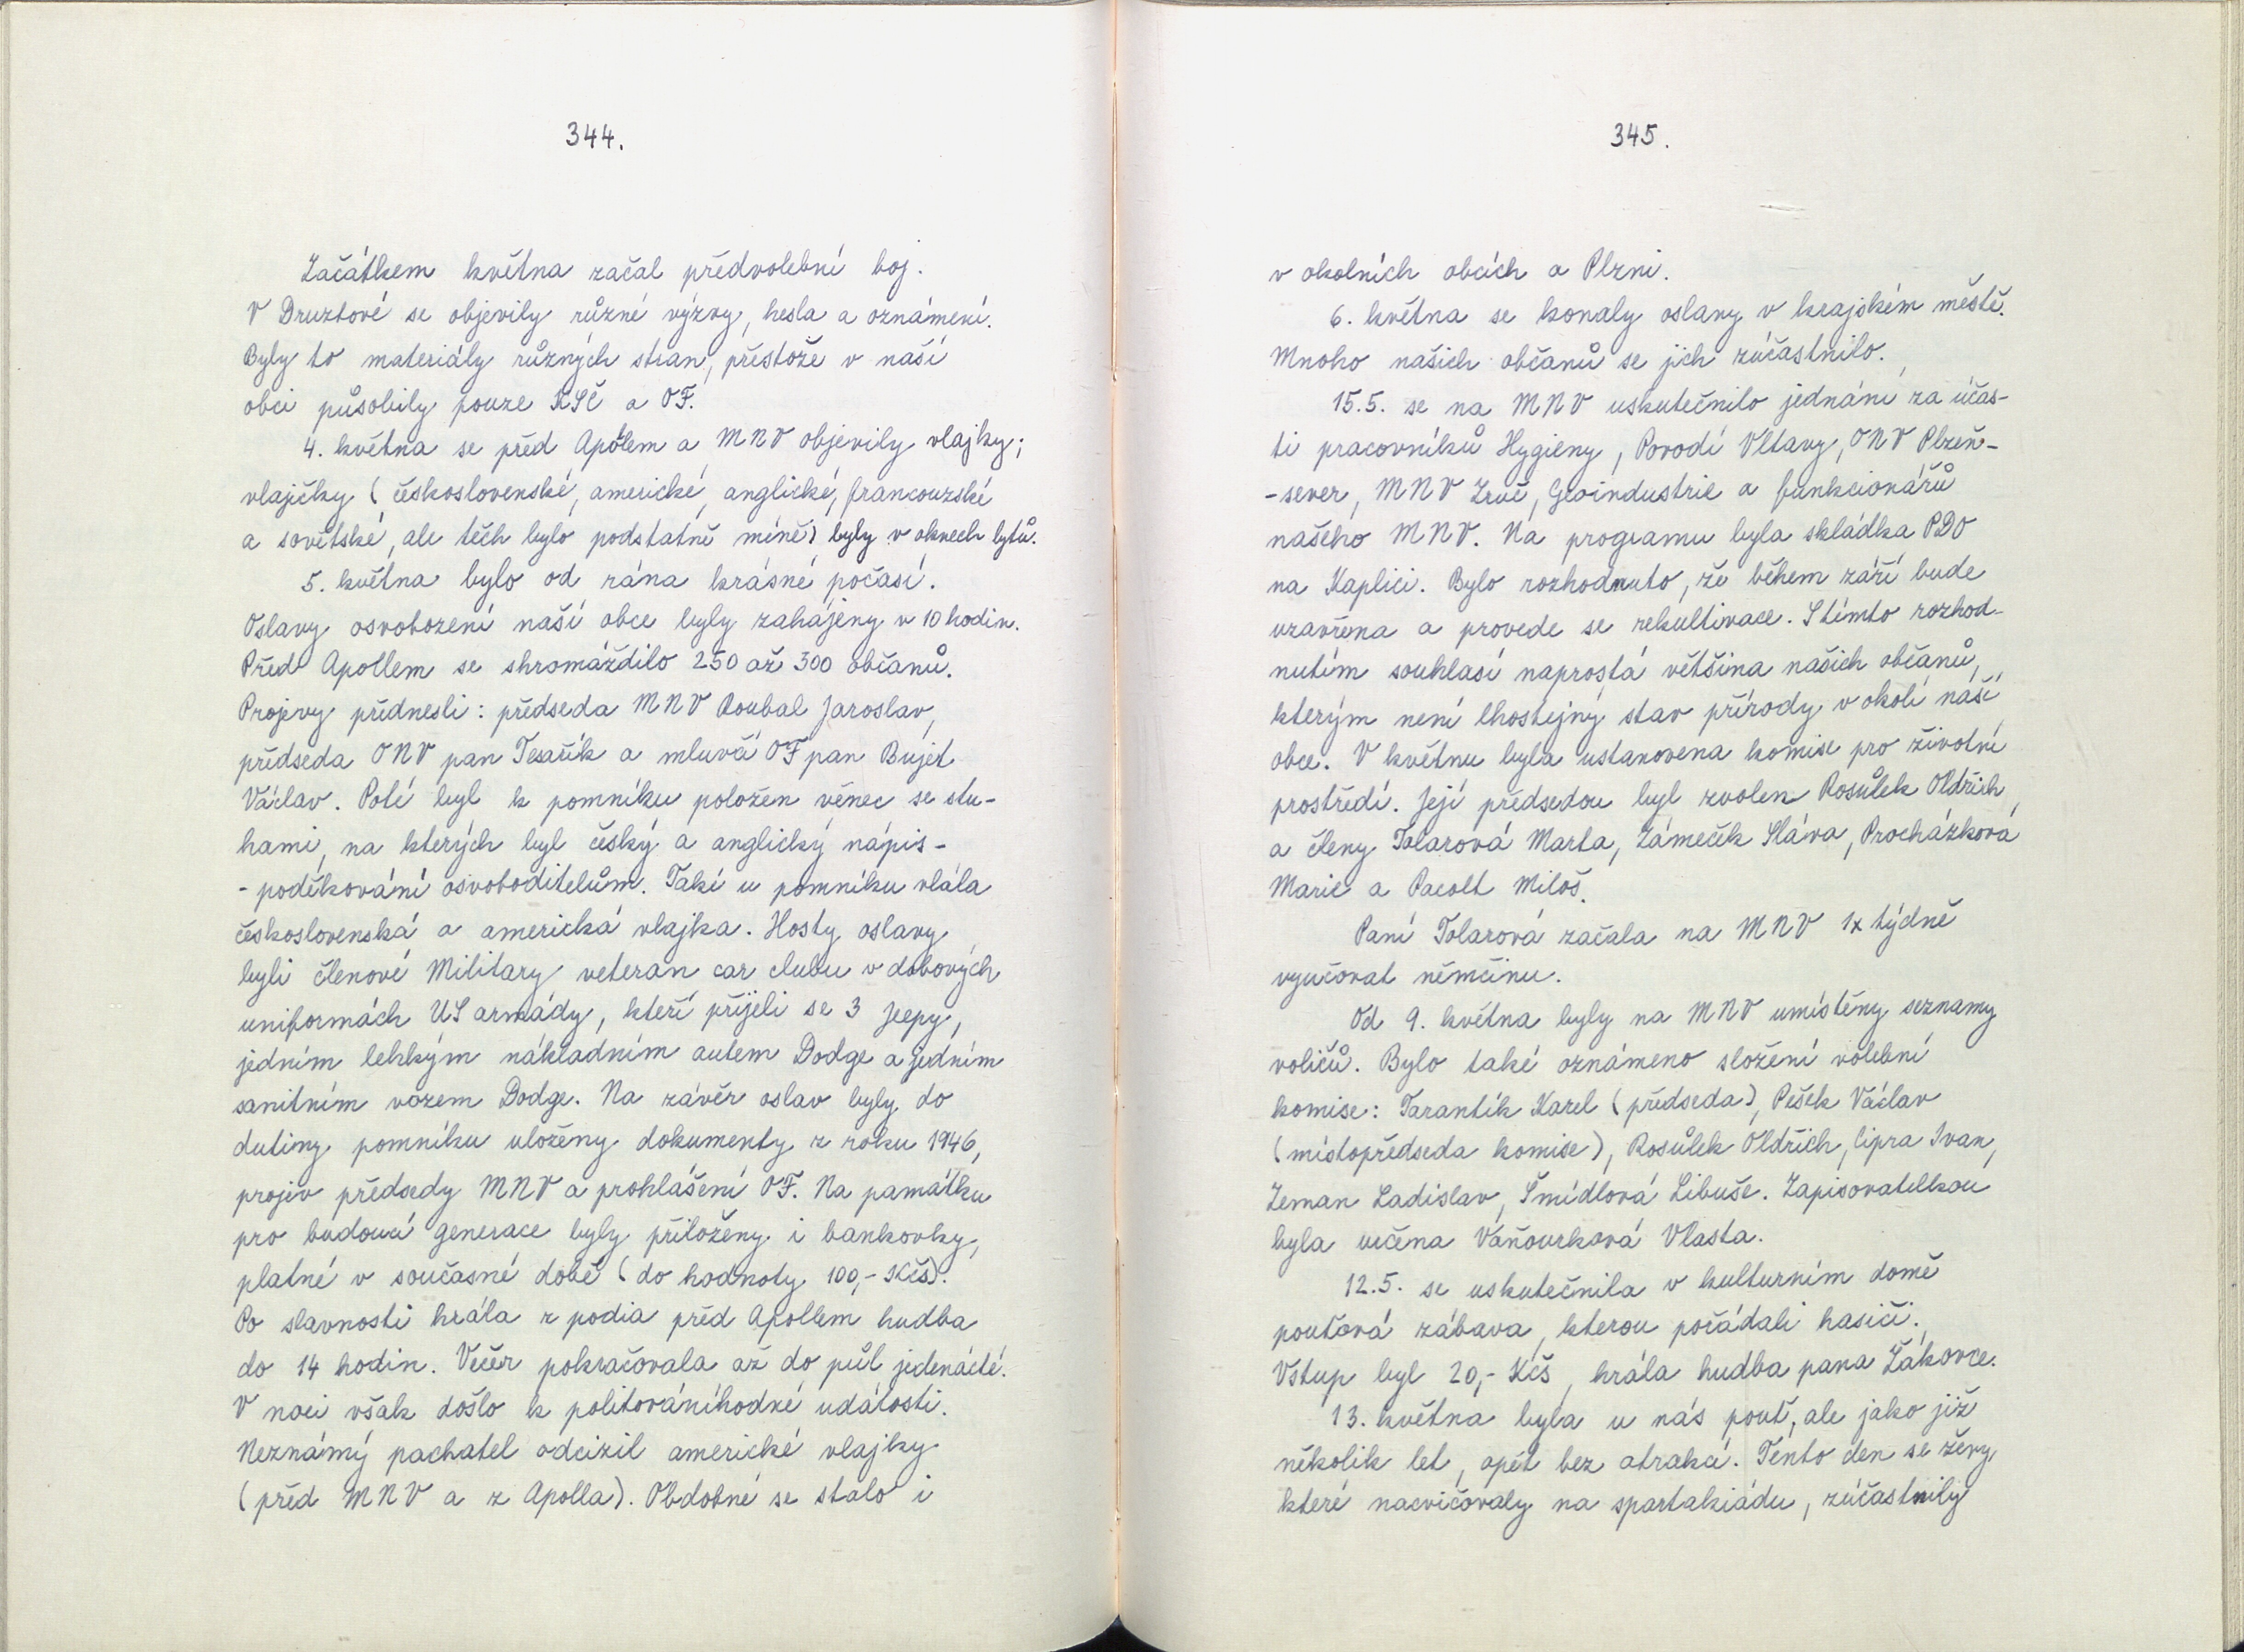 344.
Začátkem května začal předvolební boj.
V Druztové se objevily různé výzvy, hesla a oznámení.
Byly to materiály různých stran, přestože v naší
obci působily pouze KSČ a OF.
4. května se před Apolem a MNV objevily vlajky;
vlaječky (československé, americké, anglické, francouzské
a sovětské, ale těch bylo podstatně méně) byly v oknech bytů.
5. května bylo od rána krásné počasí.
Oslavy osvobození naší obce byly zahájeny v 10 hodin.
Před Apollem se shromáždilo 250 až 300 občanů.
Projevy přednesli: předseda MNV Roubal Jaroslav,
předseda ONV pan Tesařík a mluvčí OF pan Bujet
Václav. Poté byl k pomníku položen věnec se stu-
hami, na kterých byl český a anglický nápis-
-poděkování osvoboditelům. Také u pomníku vlála
československá a americká vlajka. Hosty oslavy
byli členové Military veteran car clubu v dobových
uniformách US armády, kteří přijeli se 3 Jeepy,
jedním lehkým nákladním autem Dodge a jedním
sanitním vozem Dodge. Na závěr oslav byly do
dutiny pomníku uloženy dokumenty z roku 1946,
projev předsedy MNV a prohlášení OF. Na památku
pro budoucí generace byly přiloženy i bankovky,
platné v současné době (do hodnoty 100,- Kčs).
Po slavnosti hrála z podia před Apollem hudba
do 14 hodin. Večer pokračovala až do půl jedenácté.
V noci však došlo k politováníhodné události.
Neznámý pachatel odcizil americké vlajky
(před MNV a z Apolla). Obdobně se stalo i
345.
v okolních obcích a Plzni.
6. května se konaly oslavy v krajském městě.
Mnoho našich občanů se jich zúčastnilo.
15.5. se na MNV uskutečnilo jednání za účas-
ti pracovníků Hygieny, Povodí Vltavy, ONV Plzeň-
-sever, MNV Zruč, Geoindustrie a funkcionářů
našeho MNV. Na programu byla skládka PDO
na Kaplici. Bylo rozhodnuto, že během září bude
uzavřena a provede se rekultivace. S tímto rozhod-
nutím souhlasí naprostá většina našich občanů,
kterým není lhostejný stav přírody v okolí naší
obce. V květnu byla ustanovena komise pro životní
prostředí. Její předsedou byl zvolen Rosůlek Oldřich,
a členy Tolarová Marta, Zámečík Sláva, Procházková
Marie a Pacolt Miloš.
Paní Tolarová začala na MNV 1x týdně
vyučovat němčinu.
Od 9. května byly na MNV umístěny seznamy
voličů. Bylo také oznámeno složení volební
komise: Tarantík Karel (předseda), Pešek Václav
(místopředseda komise), Rosůlek Oldřich, Cipra Ivan,
Zeman Ladislav, Šmídlová Libuše. Zapisovatelkou
byla určena Vaňourková Vlasta.
12.5. se uskutečnila v kulturním domě
pouťová zábava, kterou pořádali hasiči.
Vstup byl 20,- Kčs, hrála hudba pana Žákovce.
13. května byla u nás pouť, ale jako již
několik let, opět bez atrakcí. Tento den se ženy,
které nacvičovaly na spartakiádu, zúčastnily